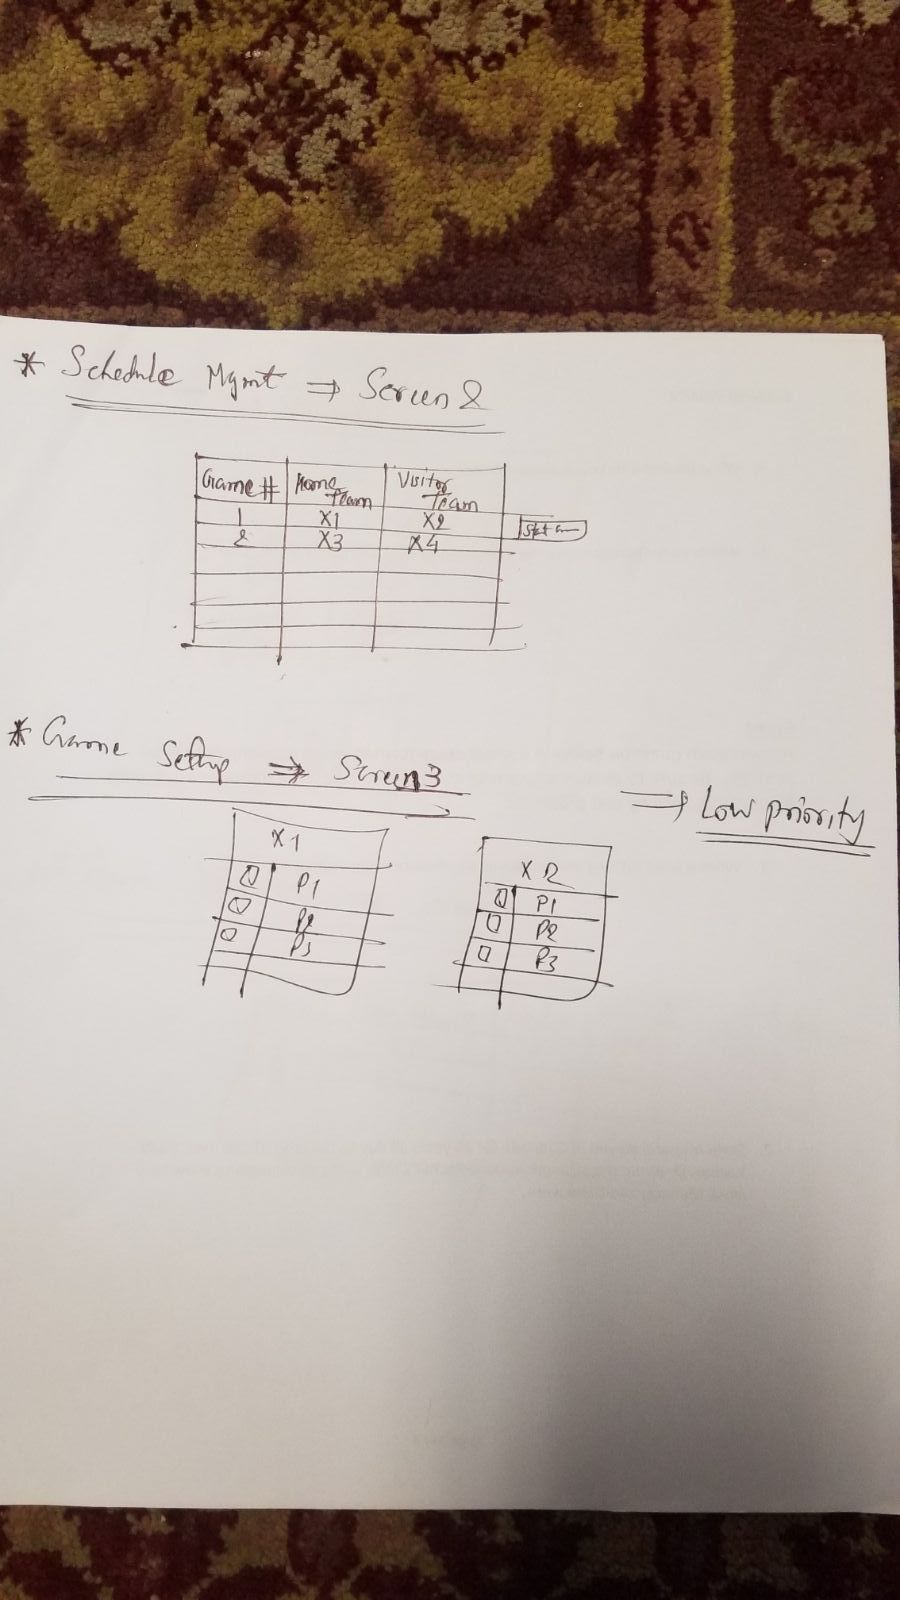 * Schedule Mgmt ⇒ Screen 2
Game # Home Team Visitor Team
1 X1 X2
2 X3 X4
* Game Setup ⇒ Screen 3
⇒ Low priority
X1
P1
P2
P3
X2
P1
P2
P3